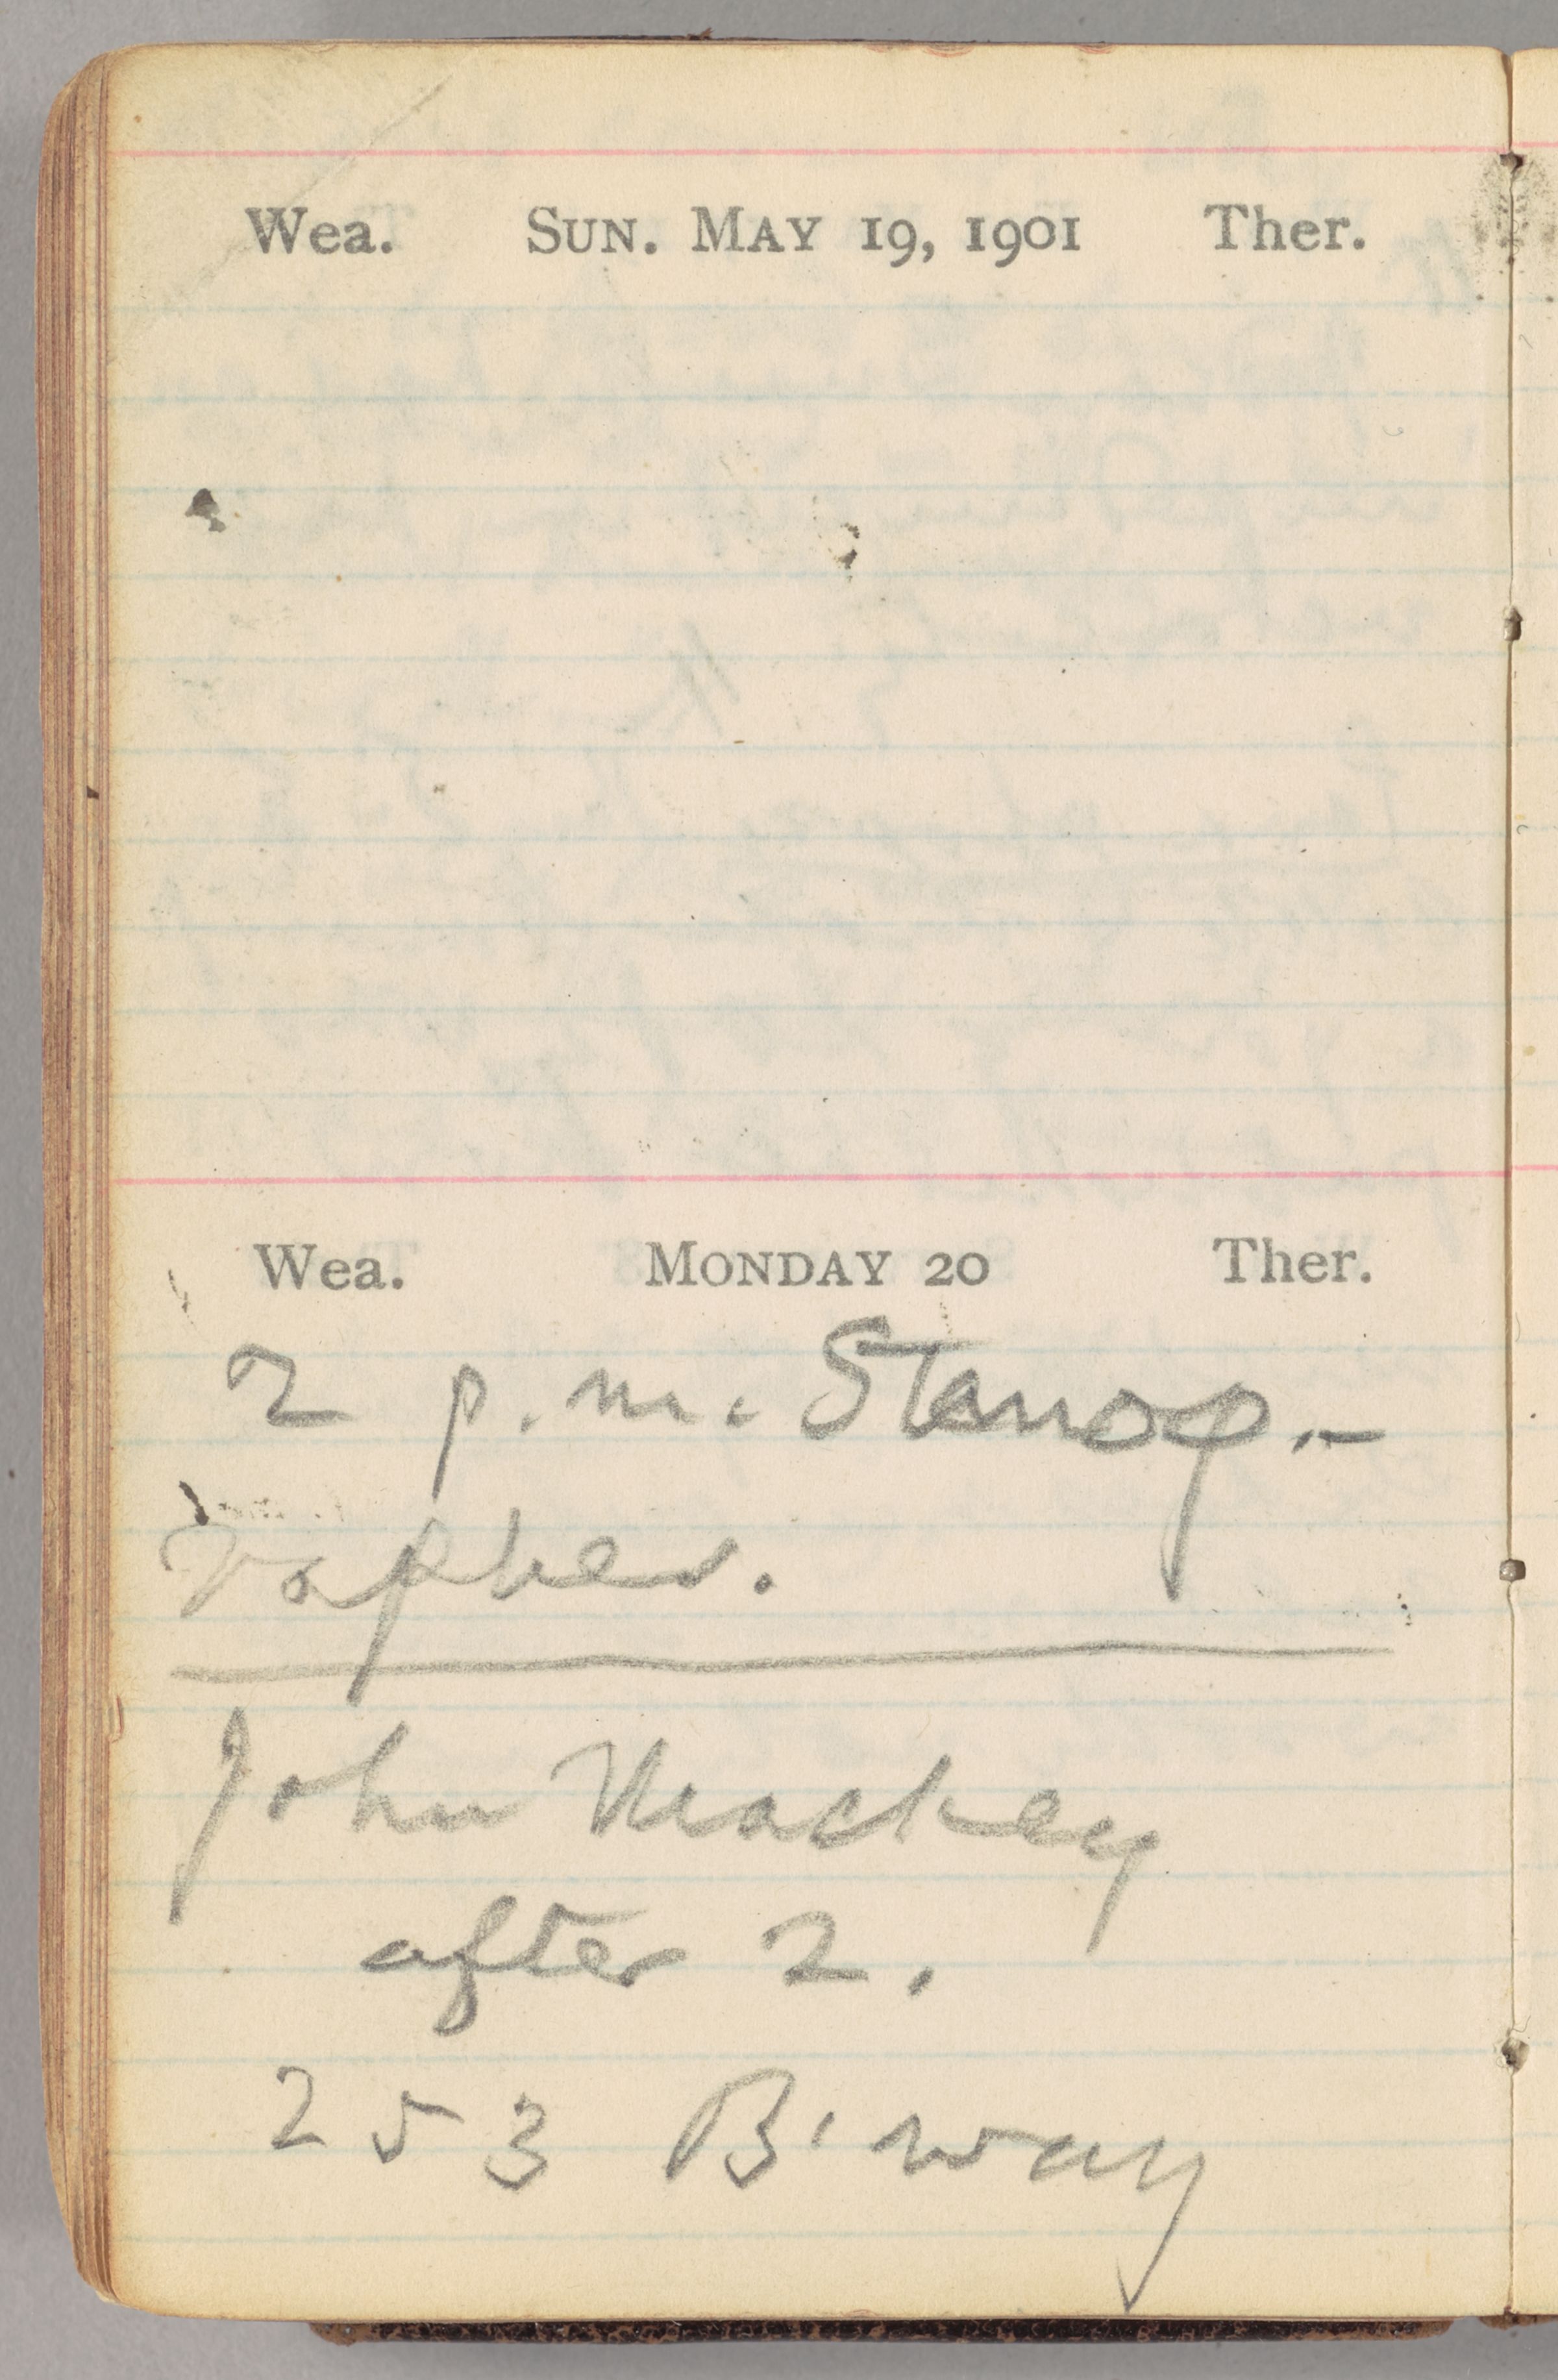 Wea. SUN. MAY 19, 1901 Ther.
Wea. MONDAY 20 Ther.
2 p.m. Stenog.-
rapher.
John Mackey
after 2.
253 B'way